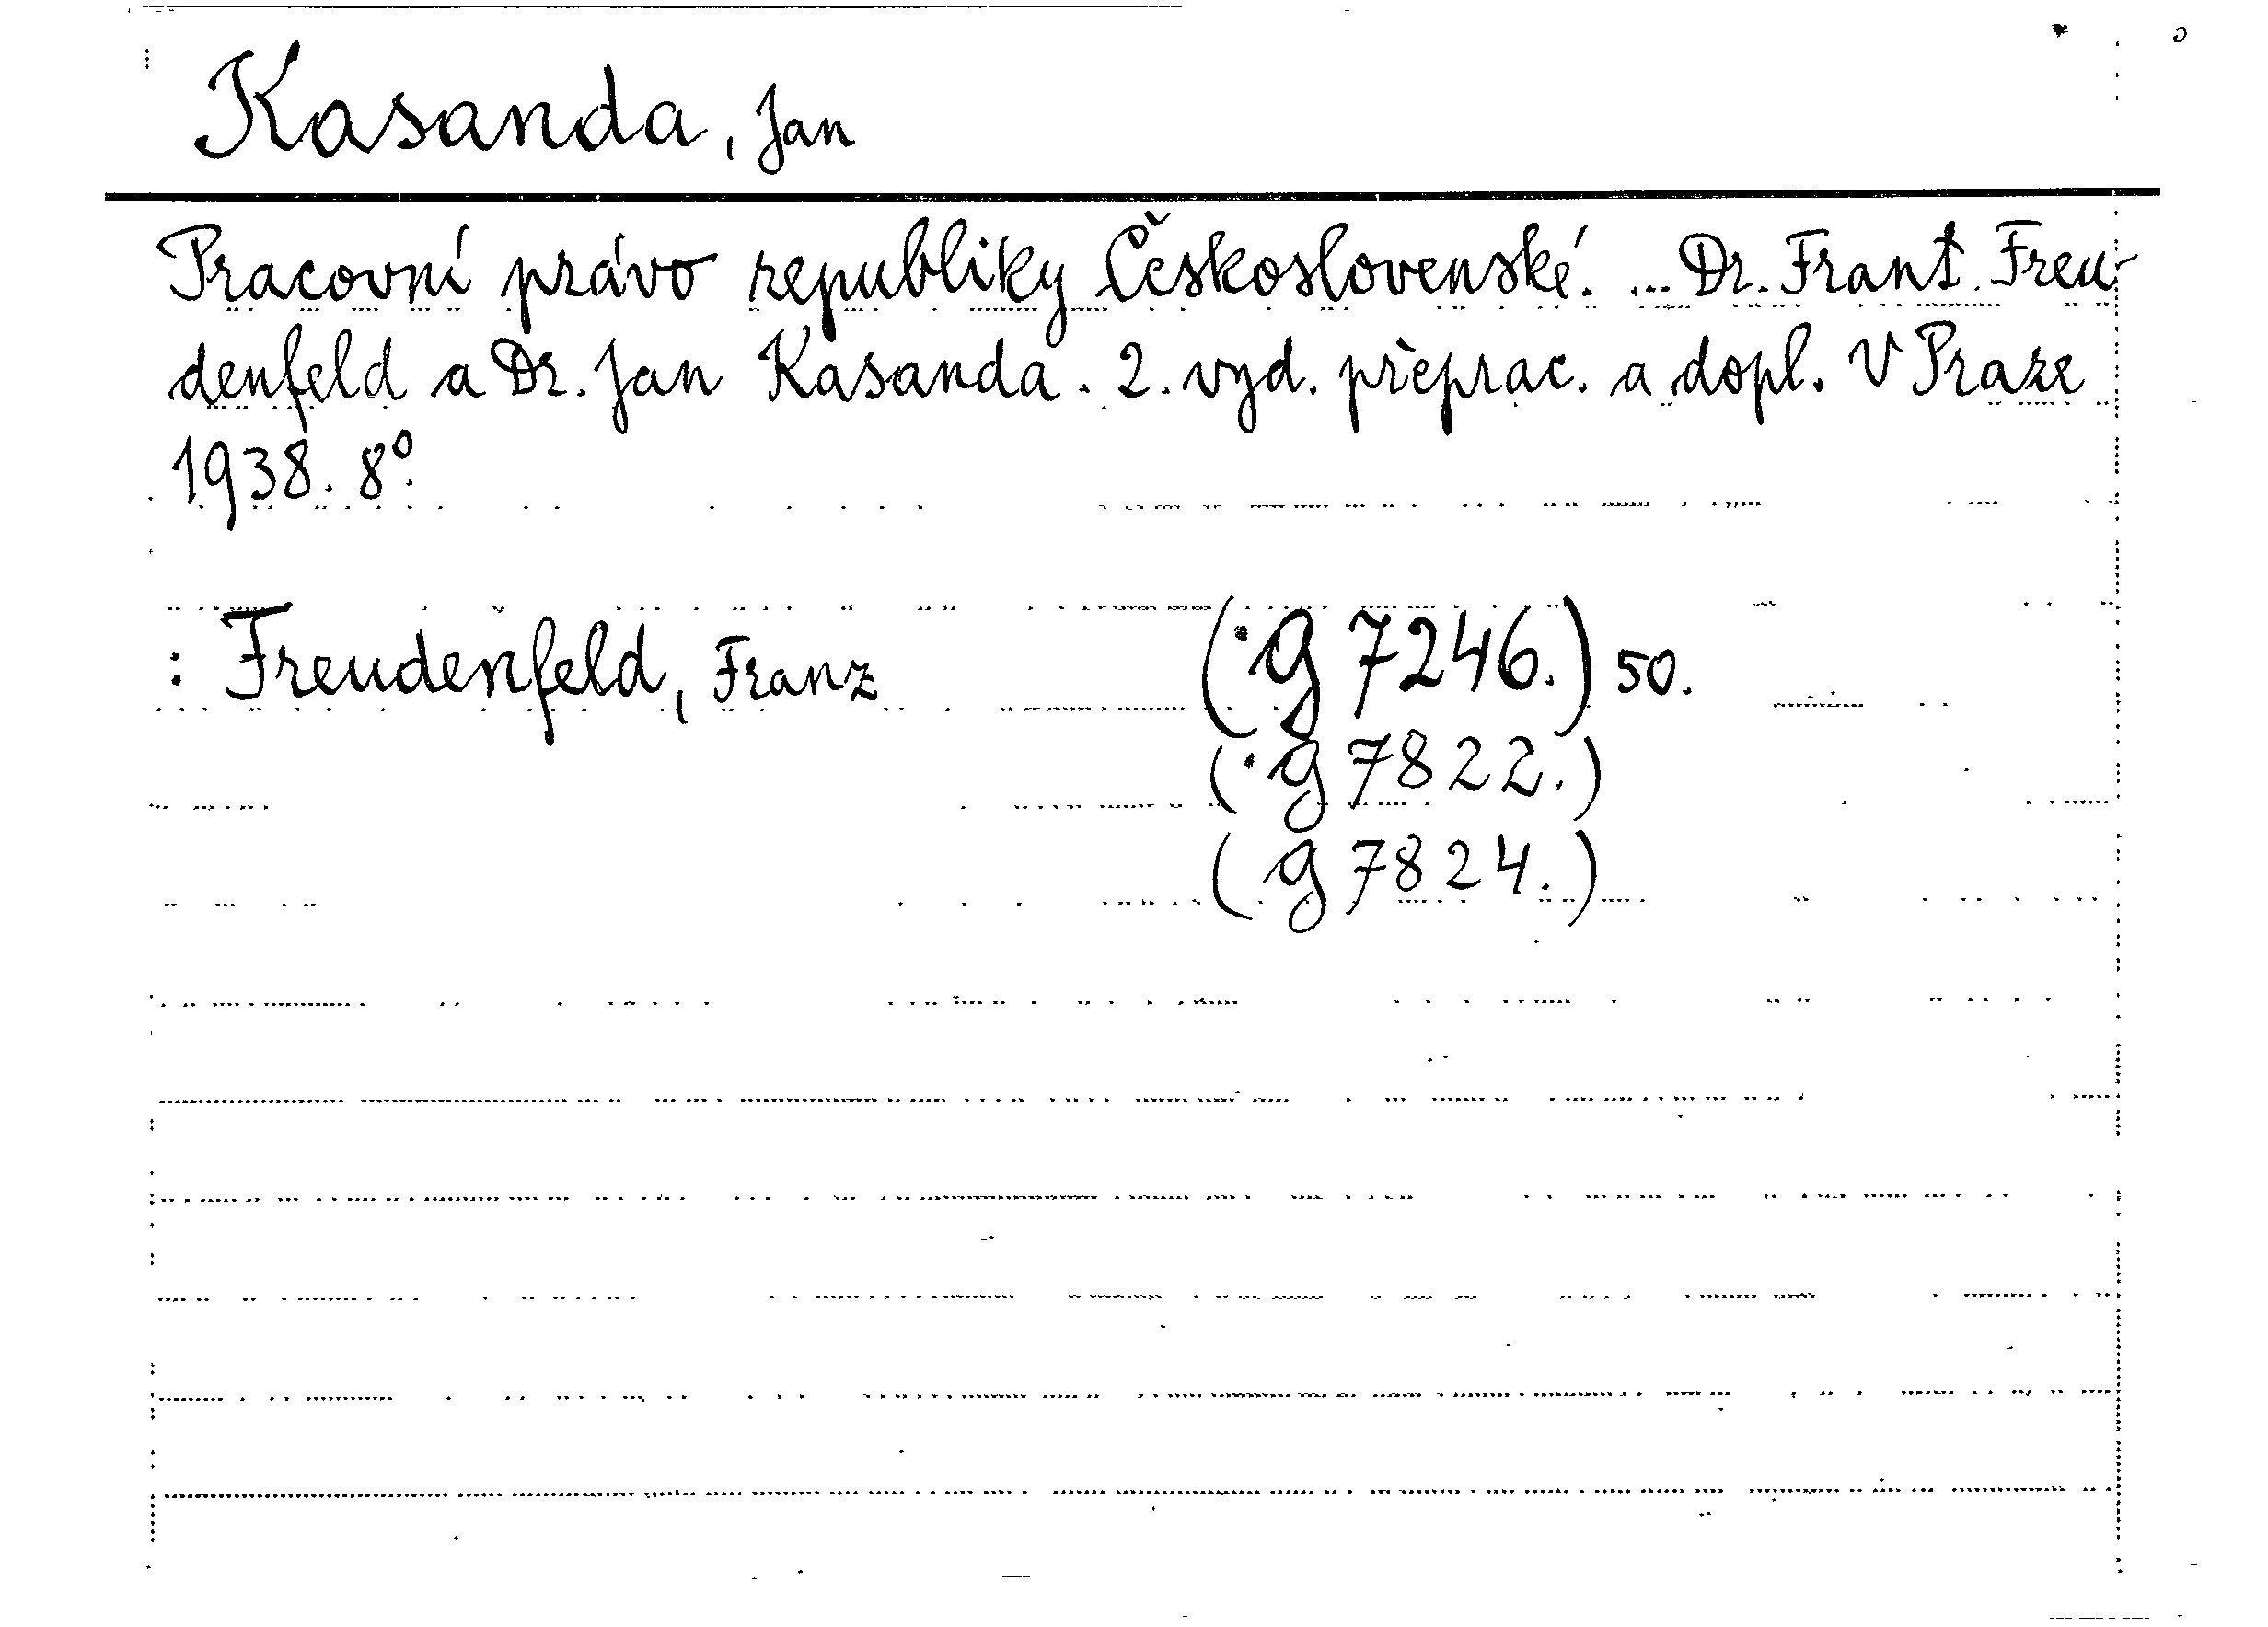 Kasanda, Jan
Pracovní právo republiky Československé. ... Dr. Frant. Freu-
denfeld a Dr. Jan Kasanda. 2. vyd. přeprac. a dopl. V Praze
1938. 8°.
: Freudenfeld, Franz (·g 7246.) 50.
(·g 7822.)
(g 7824.)